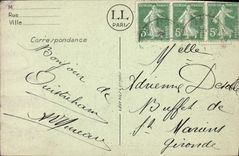 M
Rue
Ville
LL
PARIS
Correspondance
Bonjour de
Ouistreham
Melle
Adrienne
Buffet de
St Mariens
Gironde